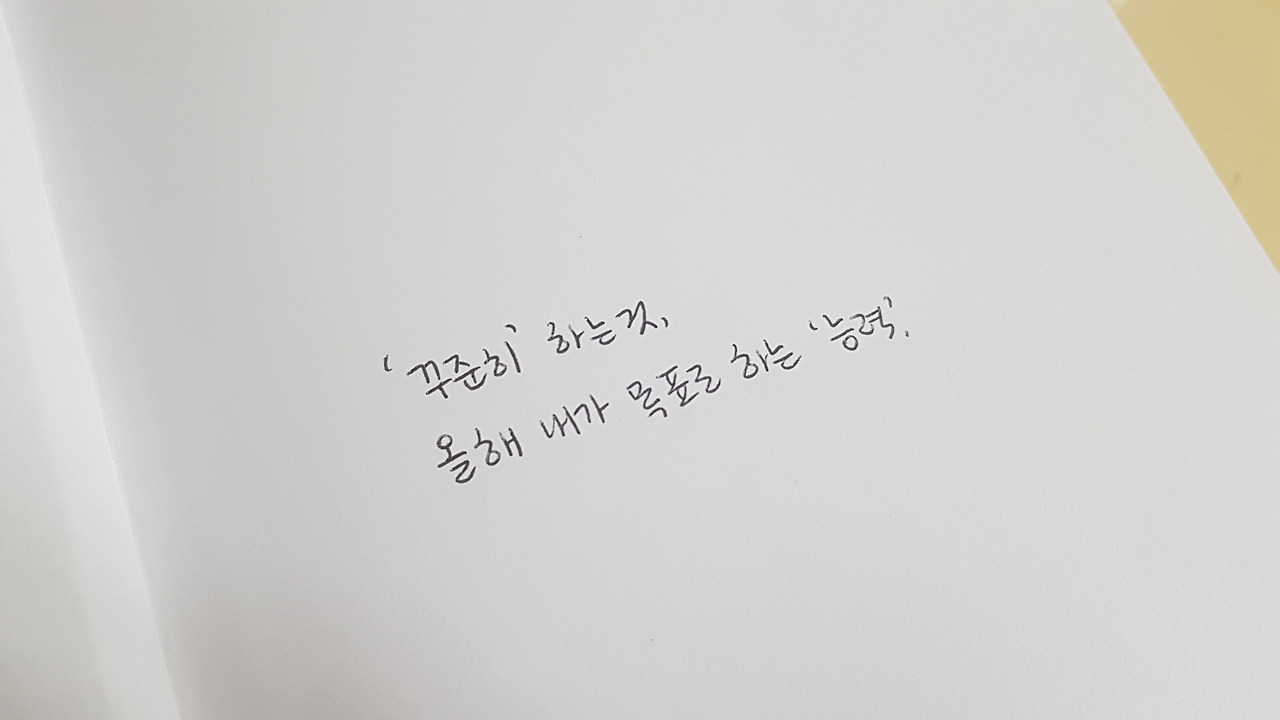 ‘꾸준히’ 하는것,
올해 내가 목표로 하는 ‘능력’.